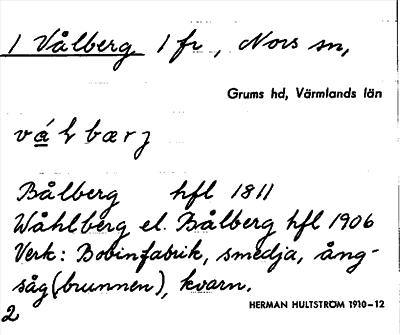 1 Vålberg 1 fr, Nors sn,
Grums hd, Värmlands län
vál bærj
Bålberg hfl 1811
Wåhlberg el. Bålberg hfl 1906
Verk: Bobinfabrik, smedja, ång-
såg (brunnen), kvarn.
HERMAN HULTSTRÖM 1910-12
2